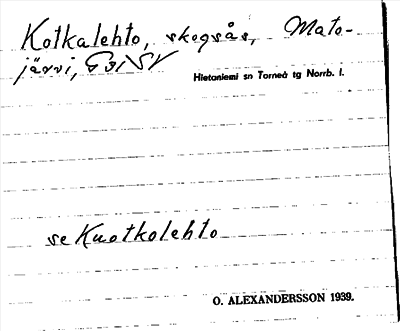 Kotkalehto, skogsås, Mato-
järvi, G 31 SV
Hietaniemi sn Torneå tg Norrb. l.
se Kuotkolehto
O. ALEXANDERSSON 1939.